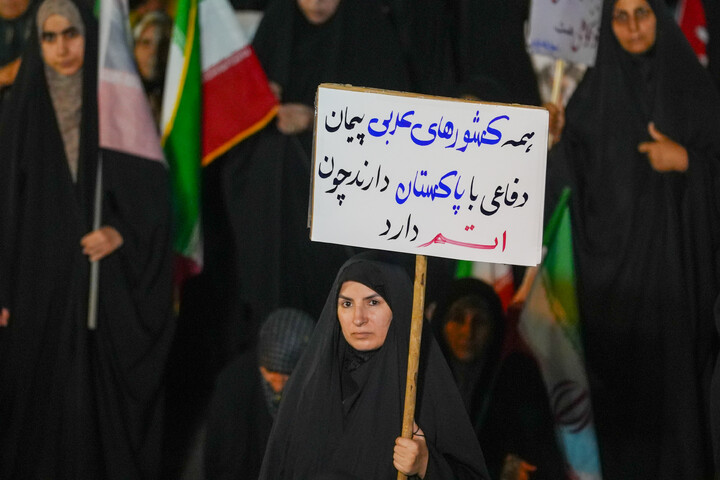 همه کشورهای عربی پیمان
دفاعی با پاکستان دارند چون
اتم دارد